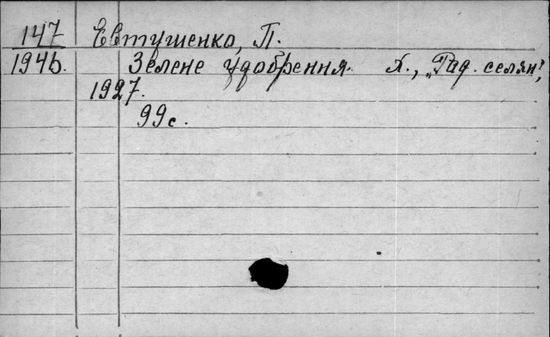 147 Евтушенко, П.
194б. Зелене удобрення. Х., „Рад. селян",
1927.
99с.